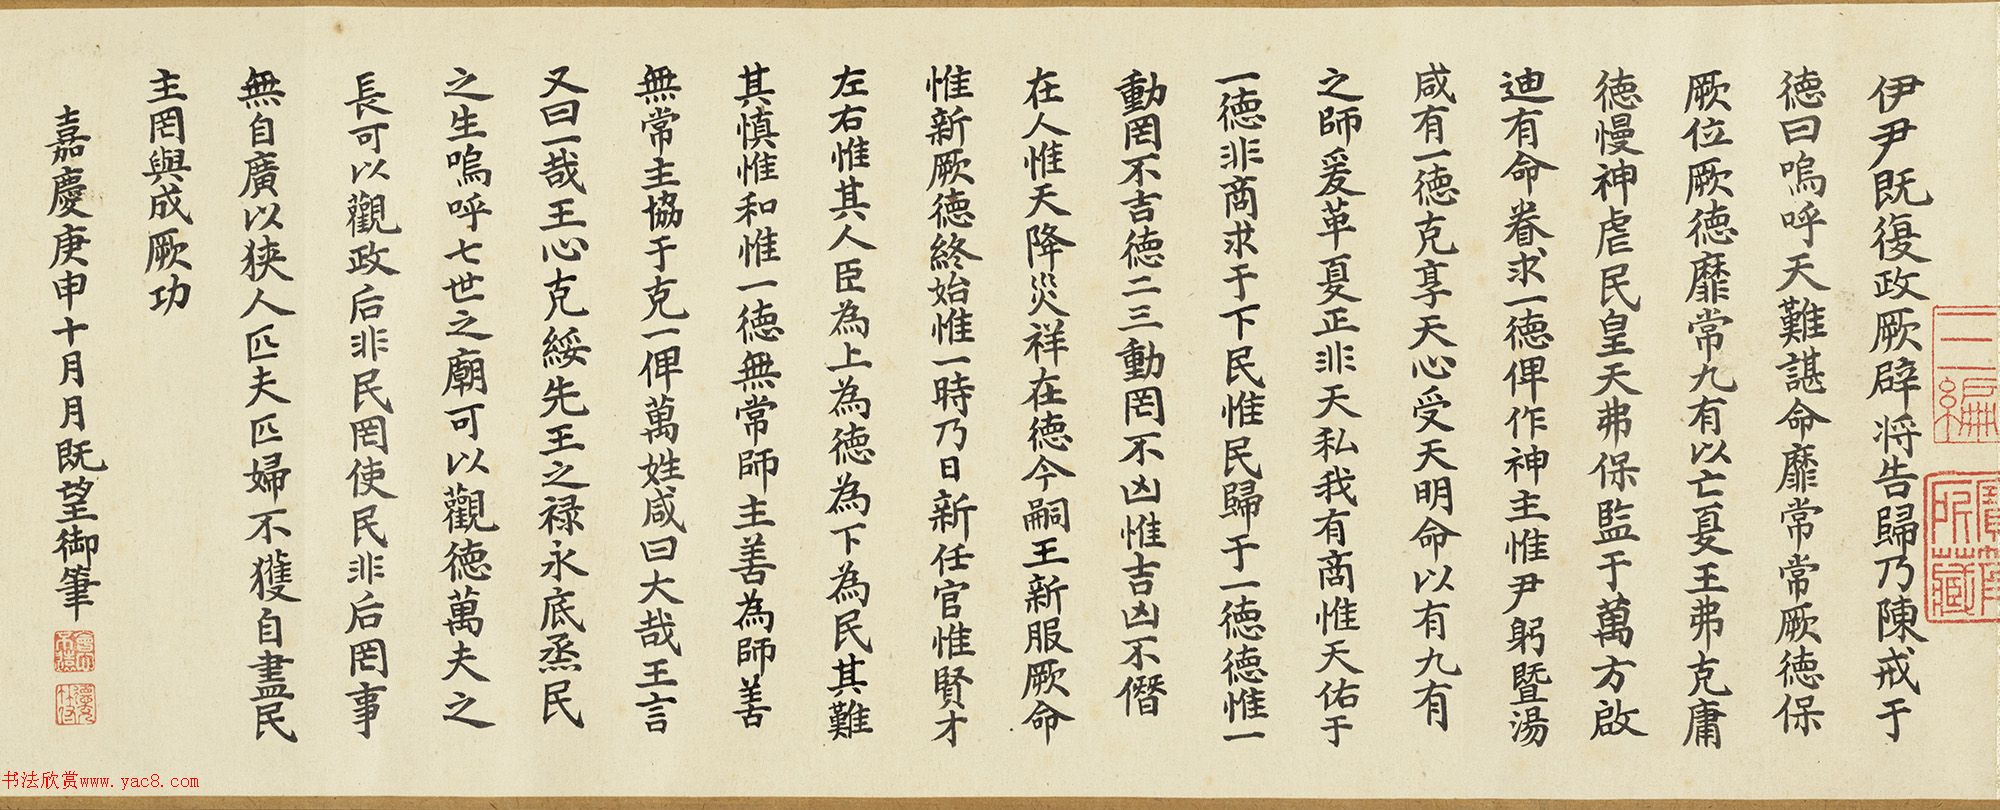 伊尹既復政厥辟将告歸乃陳戒于
德曰嗚呼天難諶命靡常常厥德保
厥位厥德靡常九有以亡夏王弗克庸
德慢神虐民皇天弗保監于萬方啟
迪有命眷求一德俾作神主惟尹躬暨湯
咸有一德克享天心受天明命以有九有
之師爰革夏正非天私我有商惟天佑于
一德非商求于下民惟民歸于一德德惟一
動罔不吉德二三動罔不凶惟吉凶不僭
在人惟天降災祥在德今嗣王新服厥命
惟新厥德終始惟一時乃日新任官惟賢才
左右惟其人臣為上為德為下為民其難
其慎惟和惟一德無常師主善為師善
無常主協于克一俾萬姓咸曰大哉王言
又曰一哉王心克綏先王之禄永底烝民
之生嗚呼七世之廟可以觀德萬夫之
長可以觀政后非民罔使民非后罔事
無自廣以狹人匹夫匹婦不獲自盡民
主罔與成厥功
嘉慶庚申十月月既望御筆
會心不遠
德充符
三編
所藏
书法欣赏www.yac8.com